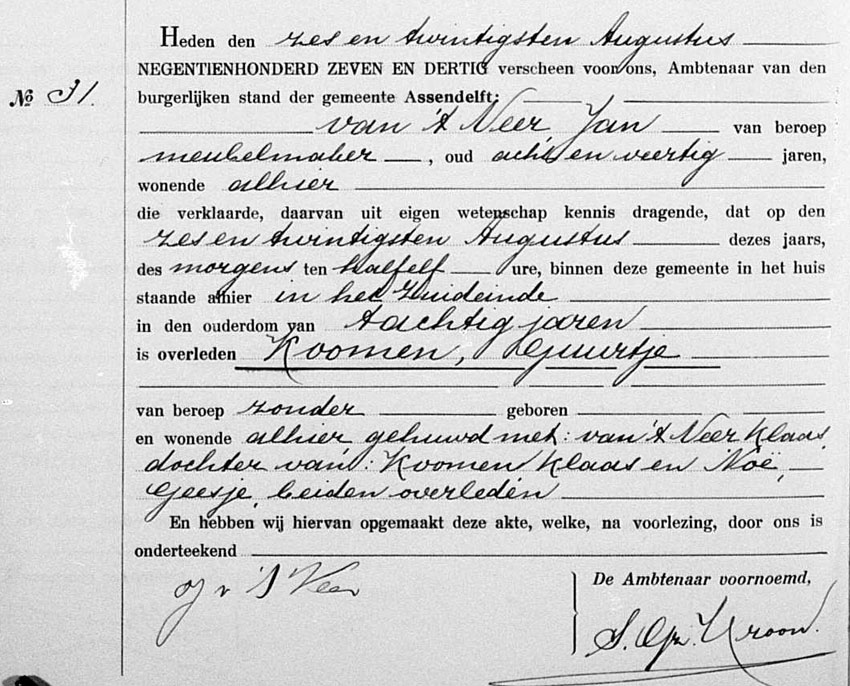 Heden den zes en twintigsten Augustus
NEGENTIENHONDERD ZEVEN EN DERTIG verscheen voor ons, Ambtenaar van den
№ 31.
burgerlijken stand der gemeente Assendelft:
van 't Veer, Jan van beroep
meubelmaker, oud acht en veertig jaren,
wonende alhier
die verklaarde, daarvan uit eigen wetenschap kennis dragende, dat op den
zes en twintigsten Augustus dezes jaars,
des morgens ten halfelf ure, binnen deze gemeente in het huis
staande alhier in het Zuideinde
in den ouderdom van tachtig jaren
is overleden Koomen, Guurtje
van beroep zonder geboren
en wonende alhier, gehuwd met: van 't Veer Klaas,
dochter van: Koomen Klaas en Noë,
Geesje, beiden overleden
En hebben wij hiervan opgemaakt deze akte, welke, na voorlezing, door ons is
onderteekend
J v 't Veer
De Ambtenaar voornoemd,
S. Kroon.